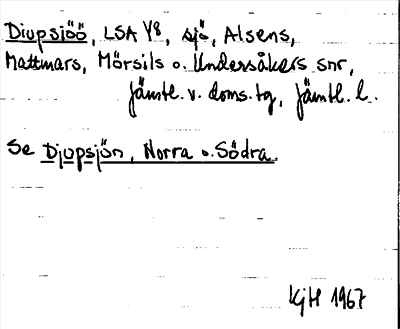 Diupsjöö, LSA Y8, sjö, Alsens,
Mattmars, Mörsils o. Undersåkers snr,
Jämtl. v. doms. tg, Jämtl. l.
Se Djupsjön, Norra o. Södra.
KjH 1967